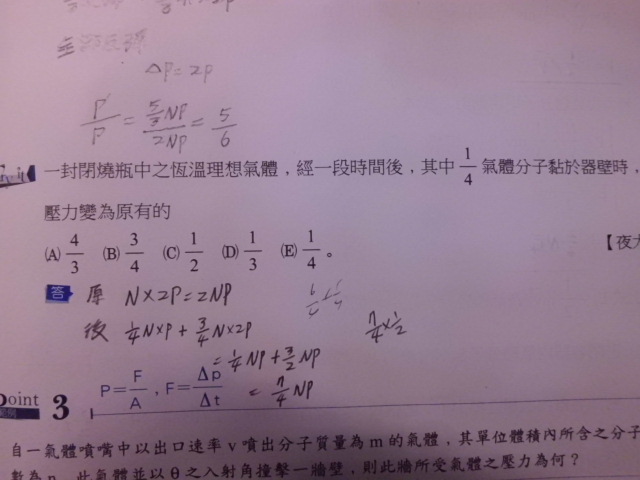 Δp=2p
p'/p = (5/3 Np)/(2Np) = 5/6
一封閉燒瓶中之恆溫理想氣體,經一段時間後,其中 1/4 氣體分子黏於器壁時,
壓力變為原有的
(A) 4/3 (B) 3/4 (C) 1/2 (D) 1/3 (E) 1/4 。
【夜大
答 原 N×2p=2Np
後 1/4 N×p + 3/4 N×2p
7/4 × 1/2
= 1/4 Np + 3/2 Np
= 7/4 Np
Point 3 P = F/A , F = Δp/Δt
自一氣體噴嘴中以出口速率 v 噴出分子質量為 m 的氣體,其單位體積內所含之分子
數為 n,此氣體並以 θ 之入射角撞擊一牆壁,則此牆所受氣體之壓力為何?